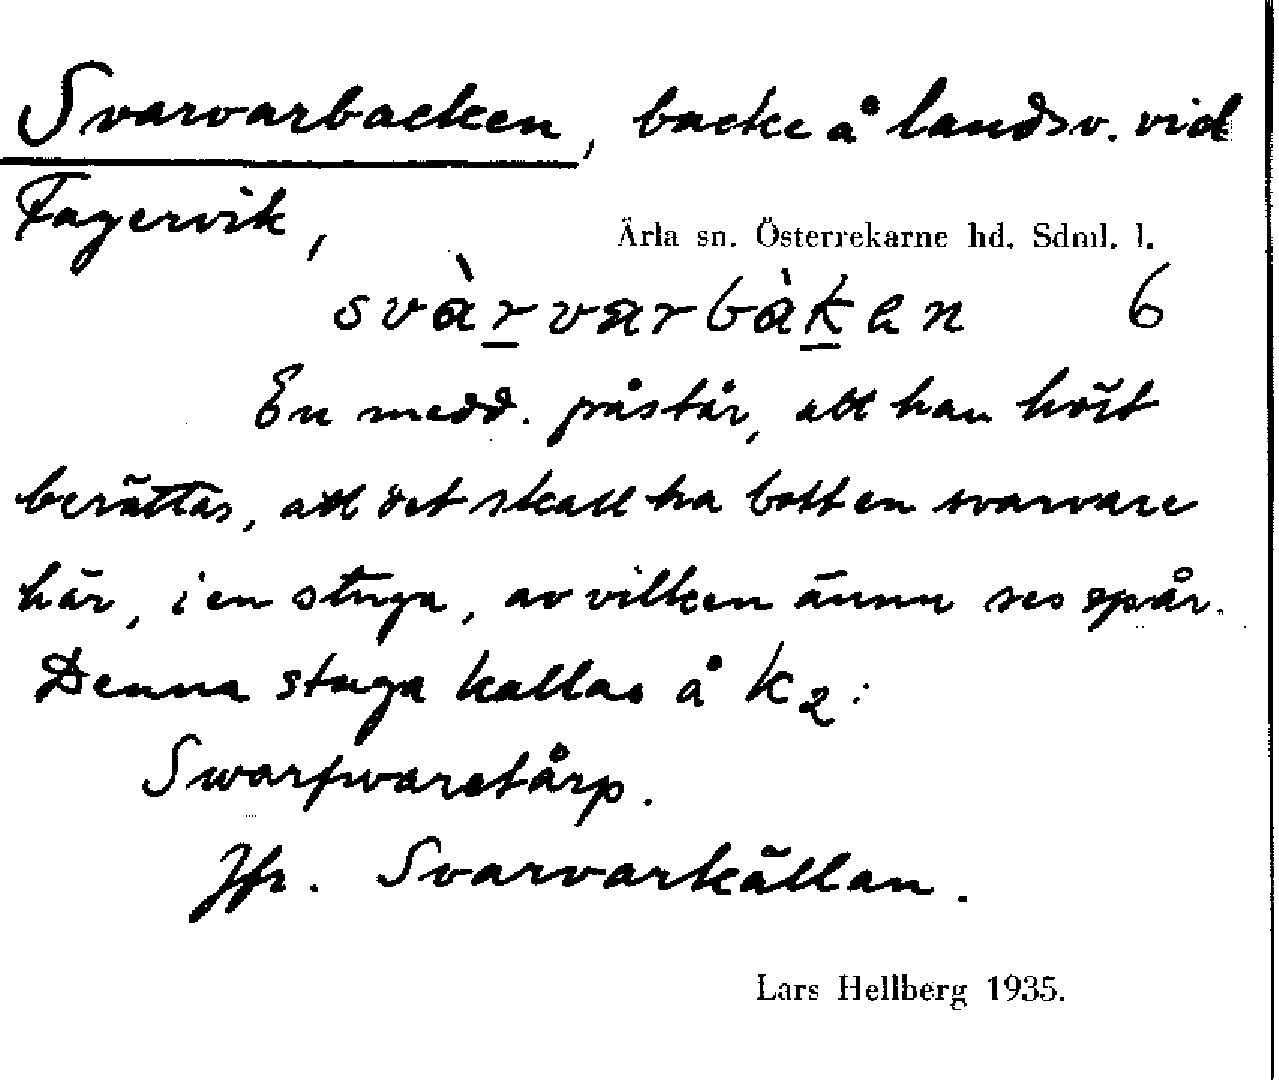 Svarvarbacken, backe å landsv. vid
Fagervik,
Ärla sn. Österrekarne hd. Sdml. l.
svàrvarbàkən 6
En medd. påstår, att han hört
berättas, att det skall ha bott en svarvare
här, i en stuga, av vilken ännu ses spår.
Denna stuga kallas å K2:
Swarfwaretårp.
Jfr. Svarvarkällan.
Lars Hellberg 1935.